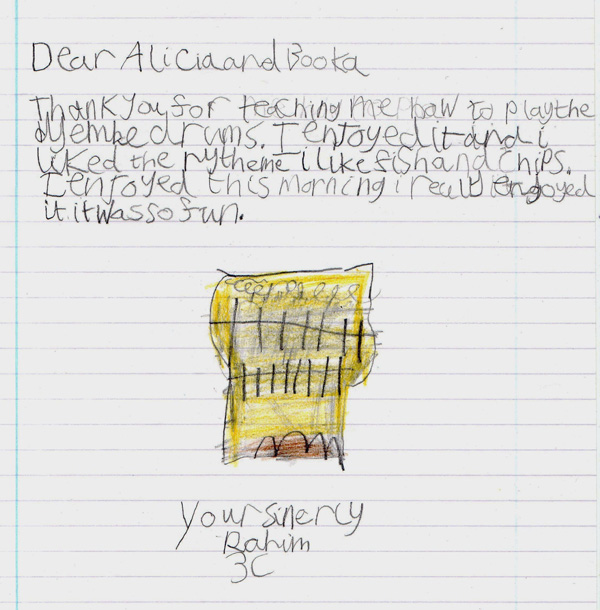 Dear Alicia and Booka
Thank you for teaching me how to play the
dyembe drums. I enjoyed it and i
liked the rytheme i like fish and chips.
I enjoyed this morning i really engoyed
it. it was so fun.
your sinercy
Rahim
3C